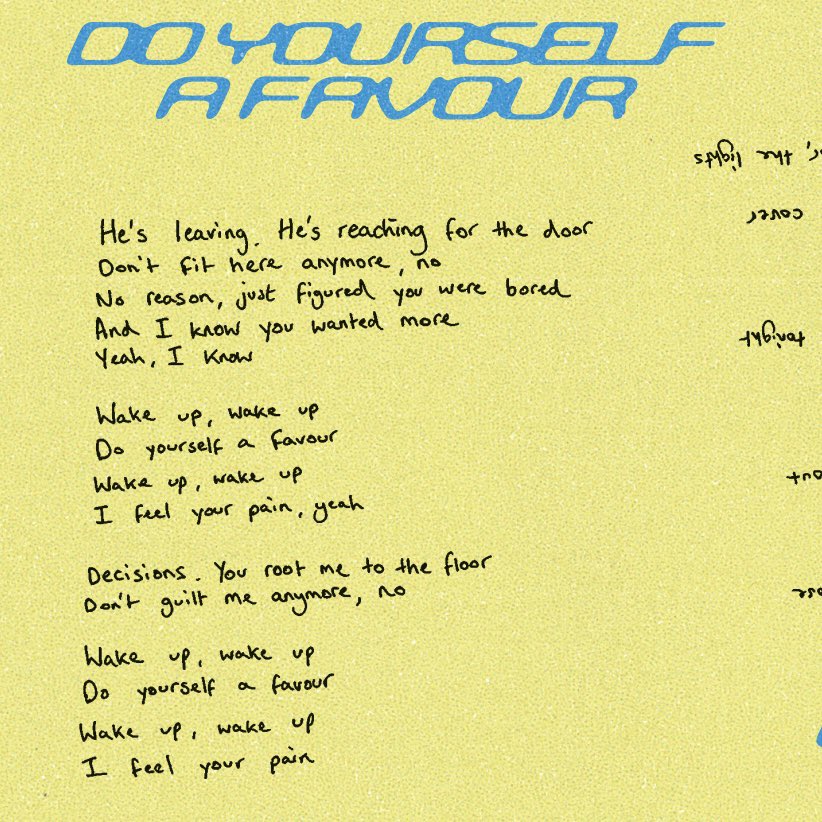 DO YOURSELF
A FAVOUR
He's leaving. He's reaching for the door
Don't fit here anymore, no
No reason, just figured you were bored
And I know you wanted more
Yeah, I know
Wake up, wake up
Do yourself a favour
Wake up, wake up
I feel your pain, yeah
Decisions. You root me to the floor
Don't guilt me anymore, no
Wake up, wake up
Do yourself a favour
Wake up, wake up
I feel your pain
the lights
cover
tonight
out